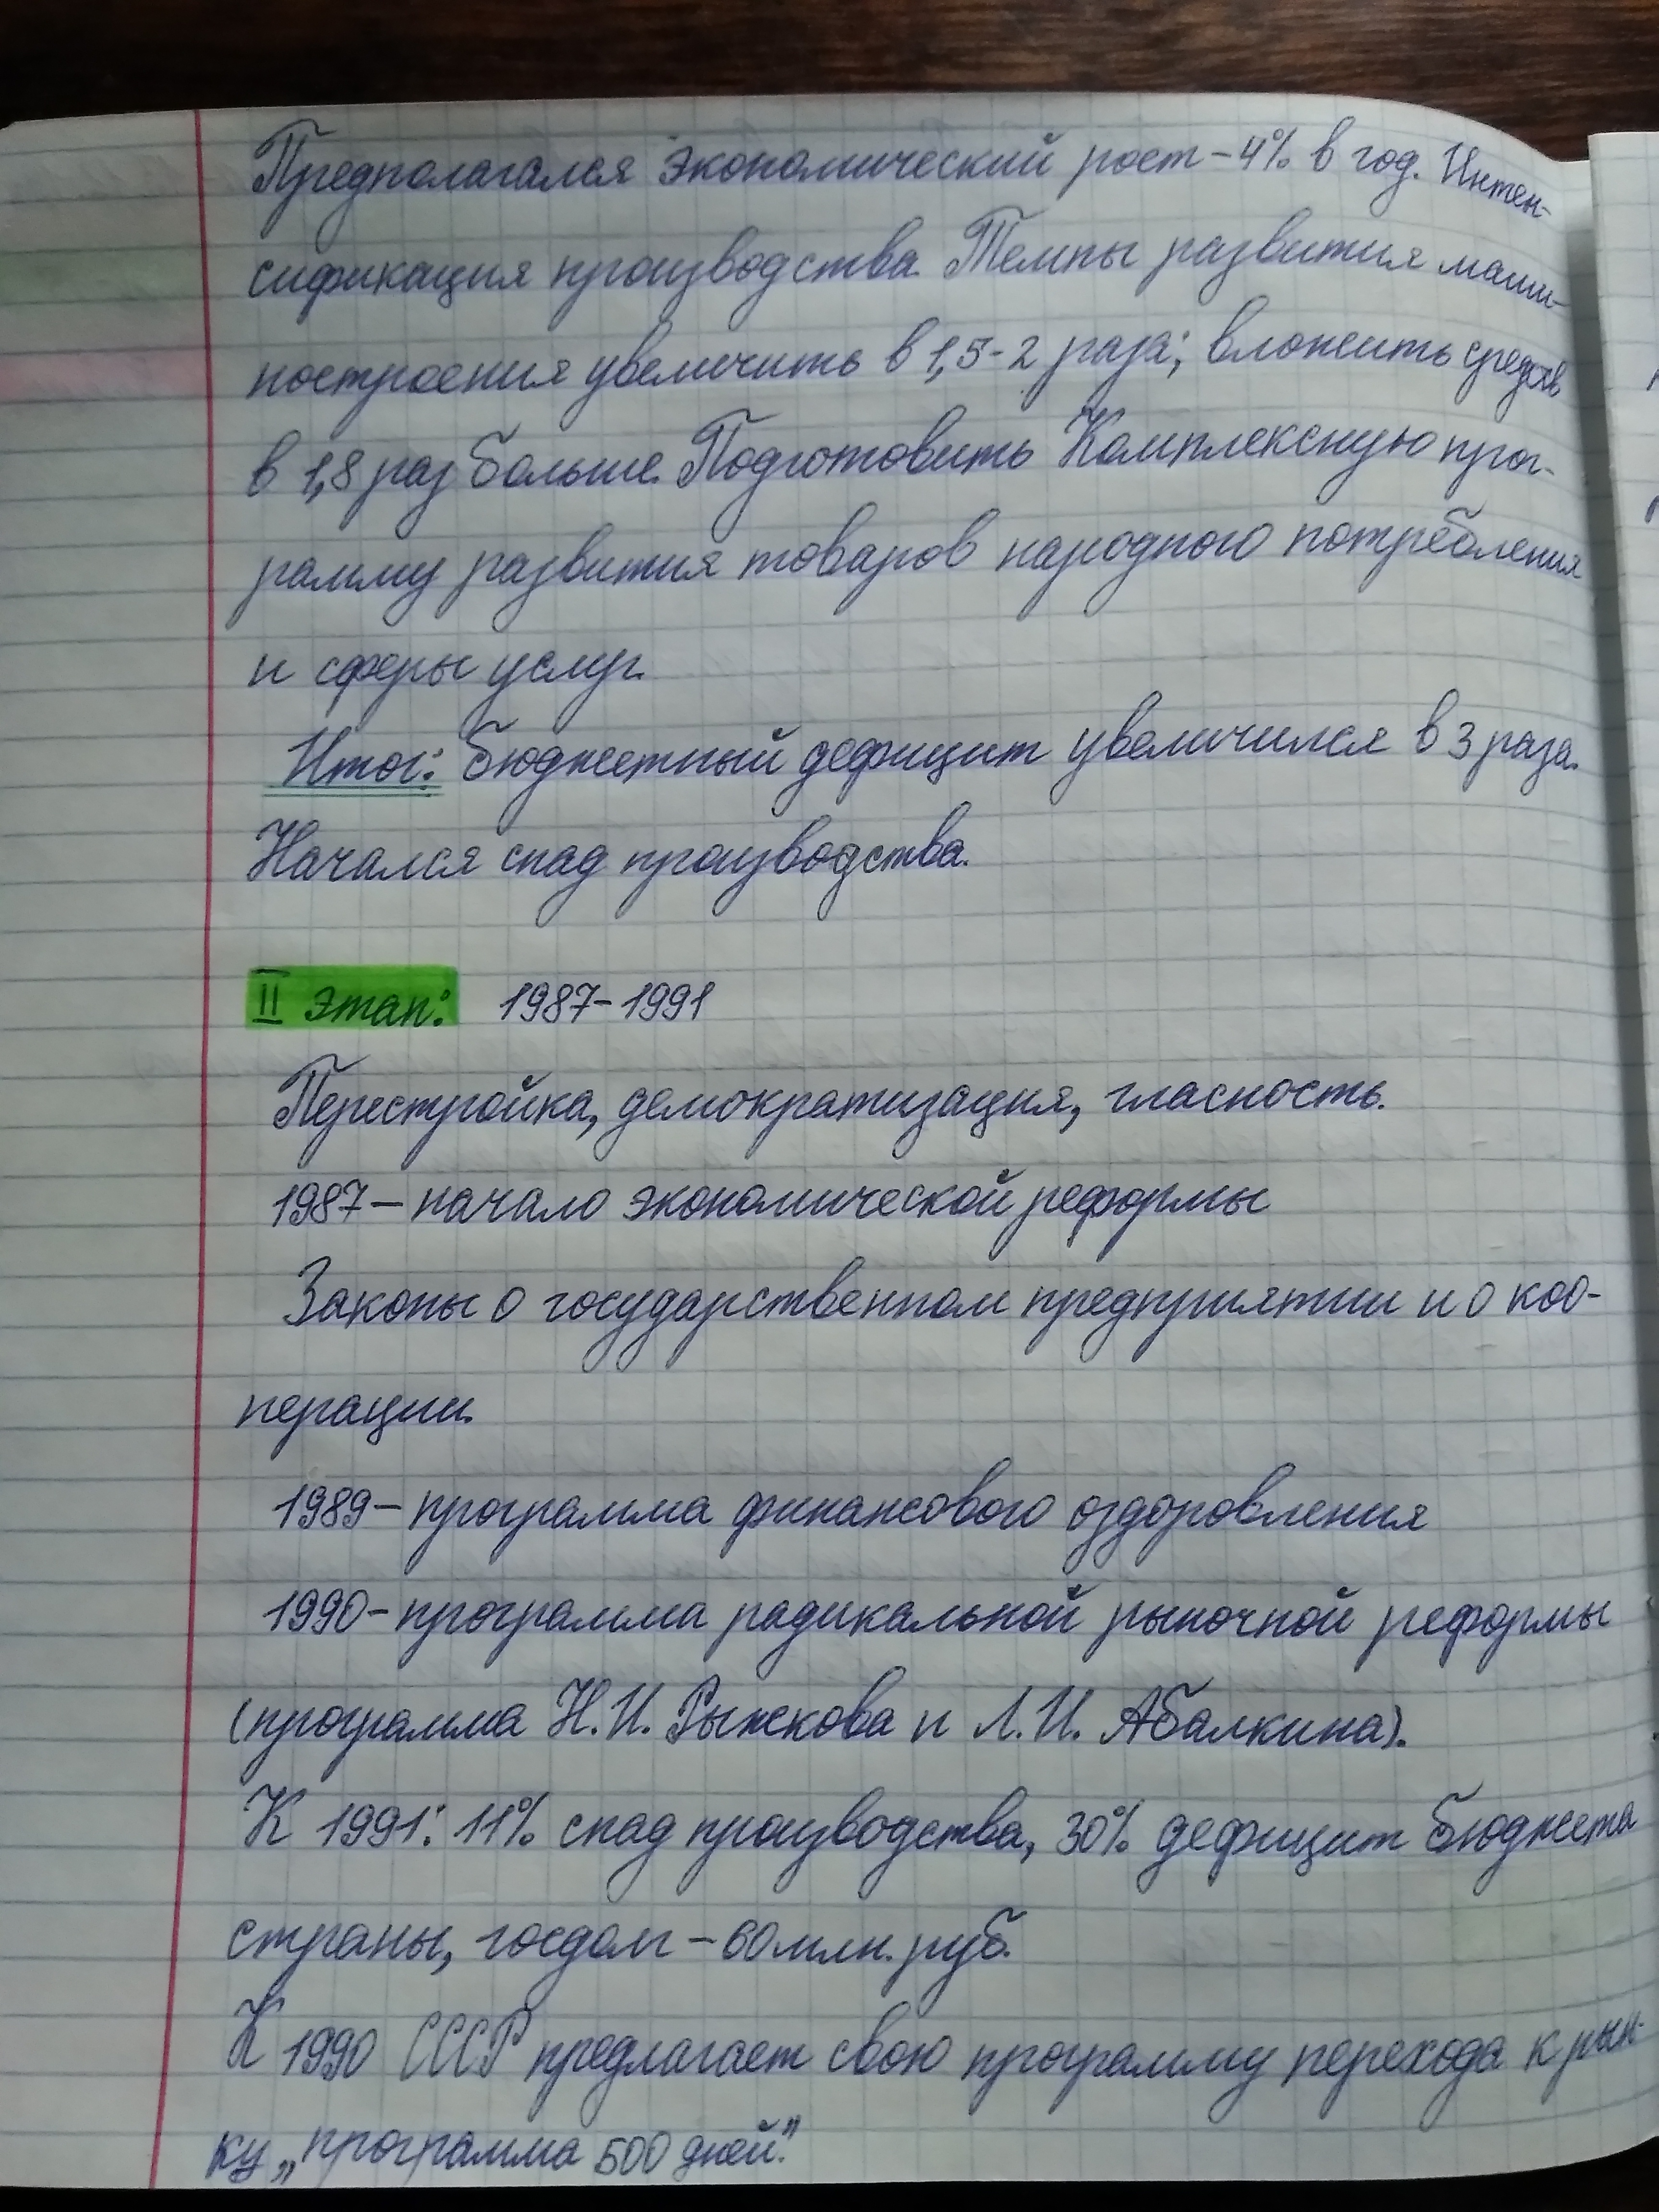 Предполагался экономический рост – 4% в год. Интен-
сификация производства. Темпы развития маши-
ностроения увеличить в 1,5-2 раза; вложить средств
в 1,8 раз больше. Подготовить Комплексную прог-
рамму развития товаров народного потребления
и сферы услуг.
Итог: бюджетный дефицит увеличился в 3 раза.
Начался спад производства.
II этап: 1987-1991
Перестройка, демократизация, гласность.
1987 – начало экономической реформы
Законы о государственном предприятии и о коо-
перации.
1989 – программа финансового оздоровления
1990 - программа радикальной рыночной реформы
(программа Н.И. Рыжкова и Л.И. Абалкина).
К 1991: 11% спад производства, 30% дефицит бюджета
страны, госдолг – 60 млн. руб.
К 1990 СССР предлагает свою программу перехода к рын-
ку „программа 500 дней."